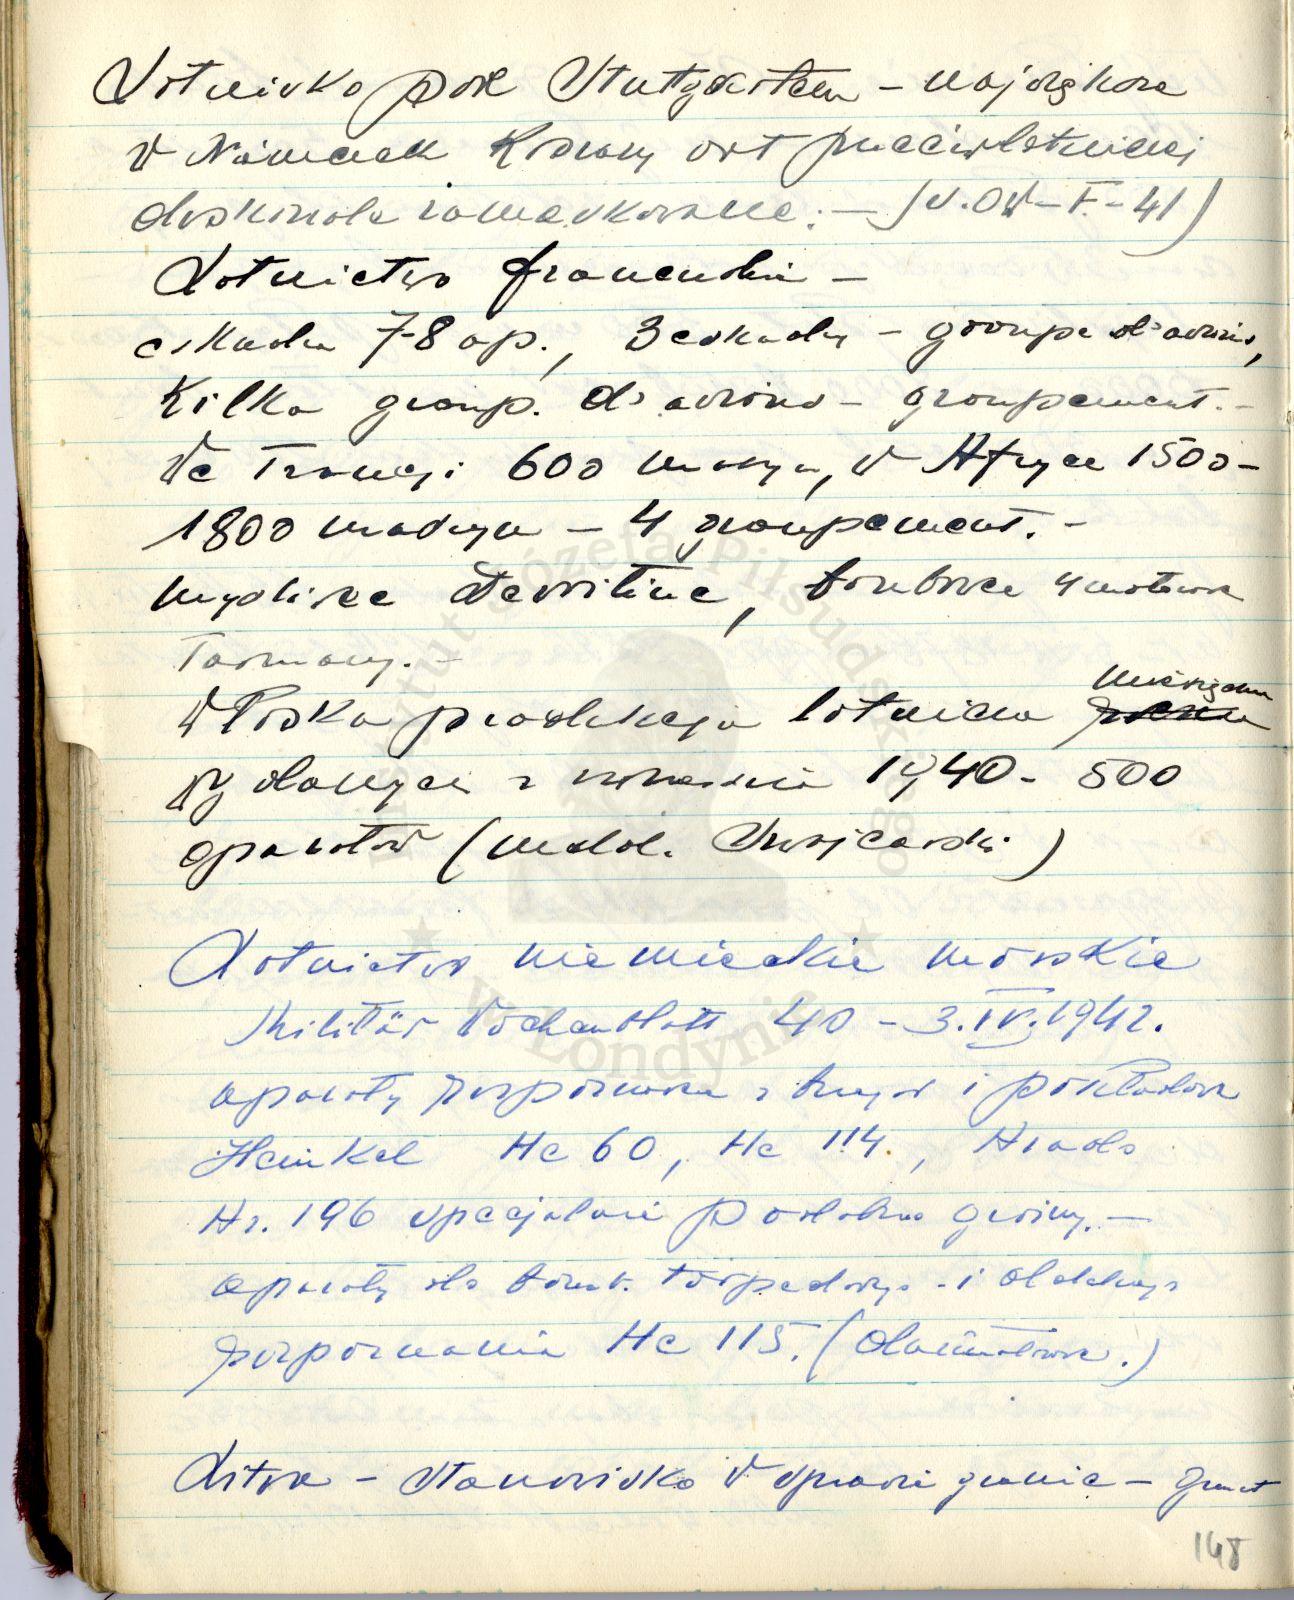 Lotnisko pod Stuttgartem – największe
w Niemczech Koszary art przeciwlotniczej
doskonale zamaskowane. –
Lotnictwo francuskie –
eskadra 7-8 ap., 3 eskadry – groupe d'avions,
Kilka group. d'avions – groupement. –
We Francji 600 maszyn, w Afryce 1500–
1800 maszyn – 4 groupement. –
myśliwce Devoitine, bombowce 4 motorowe
Farmany. –
W Polska produkcja lotnicza miesięczna
wydanych z 1940 – 500
aparatów (Szwajcarski)
Lotnictwo niemieckie morskie
Militär Wochenblatt 40 – 3.IV.1942.
aparaty rozpoznawcze z i pokładowe
Heinkel He 60, He 114., Arado
Ar. 196 specjalnie podobno groźny. –
aparaty dla bomb. torpedowych i dalekiego
rozpoznania He 115.
Litwa – Stanowisko w sprawie granic –
148
Instytut Józefa Piłsudskiego
w Londynie